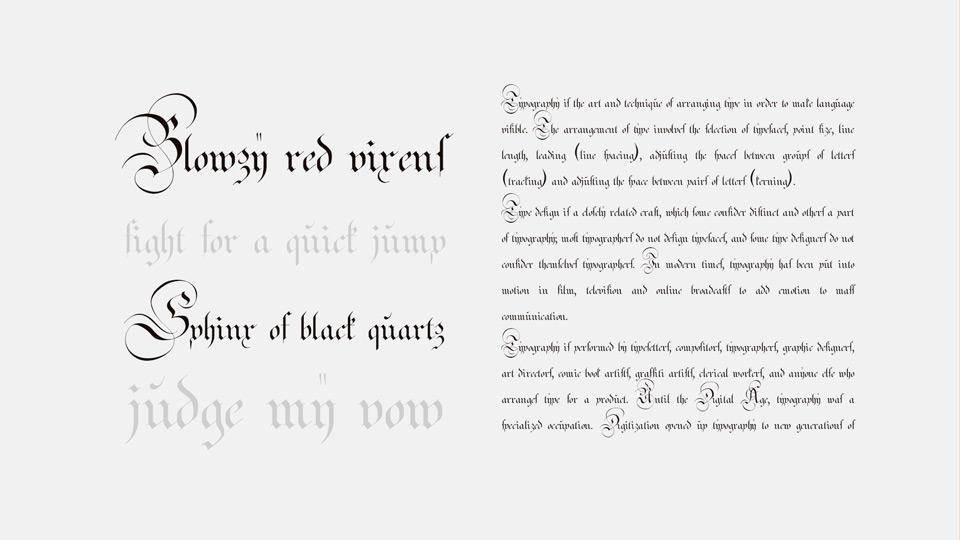 Blowzy red vixens
fight for a quick jump
Sphinx of black quartz
judge my vow
Typography is the art and technique of arranging type in order to make language
visible. The arrangement of type involves the selection of typefaces, point size, line
length, leading (line spacing), adjusting the spaces between groups of letters
(tracking) and adjusting the space between pairs of letters (kerning).
Type design is a closely related craft, which some consider distinct and others a part
of typography; most typographers do not design typefaces, and some type designers do not
consider themselves typographers. In modern times, typography has been put into
motion in film, television and online broadcasts to add emotion to mass
communication.
Typography is performed by typesetters, compositors, typographers, graphic designers,
art directors, comic book artists, graffiti artists, clerical workers, and anyone else who
arranges type for a product. Until the Digital Age, typography was a
specialized occupation. Digitization opened up typography to new generations of